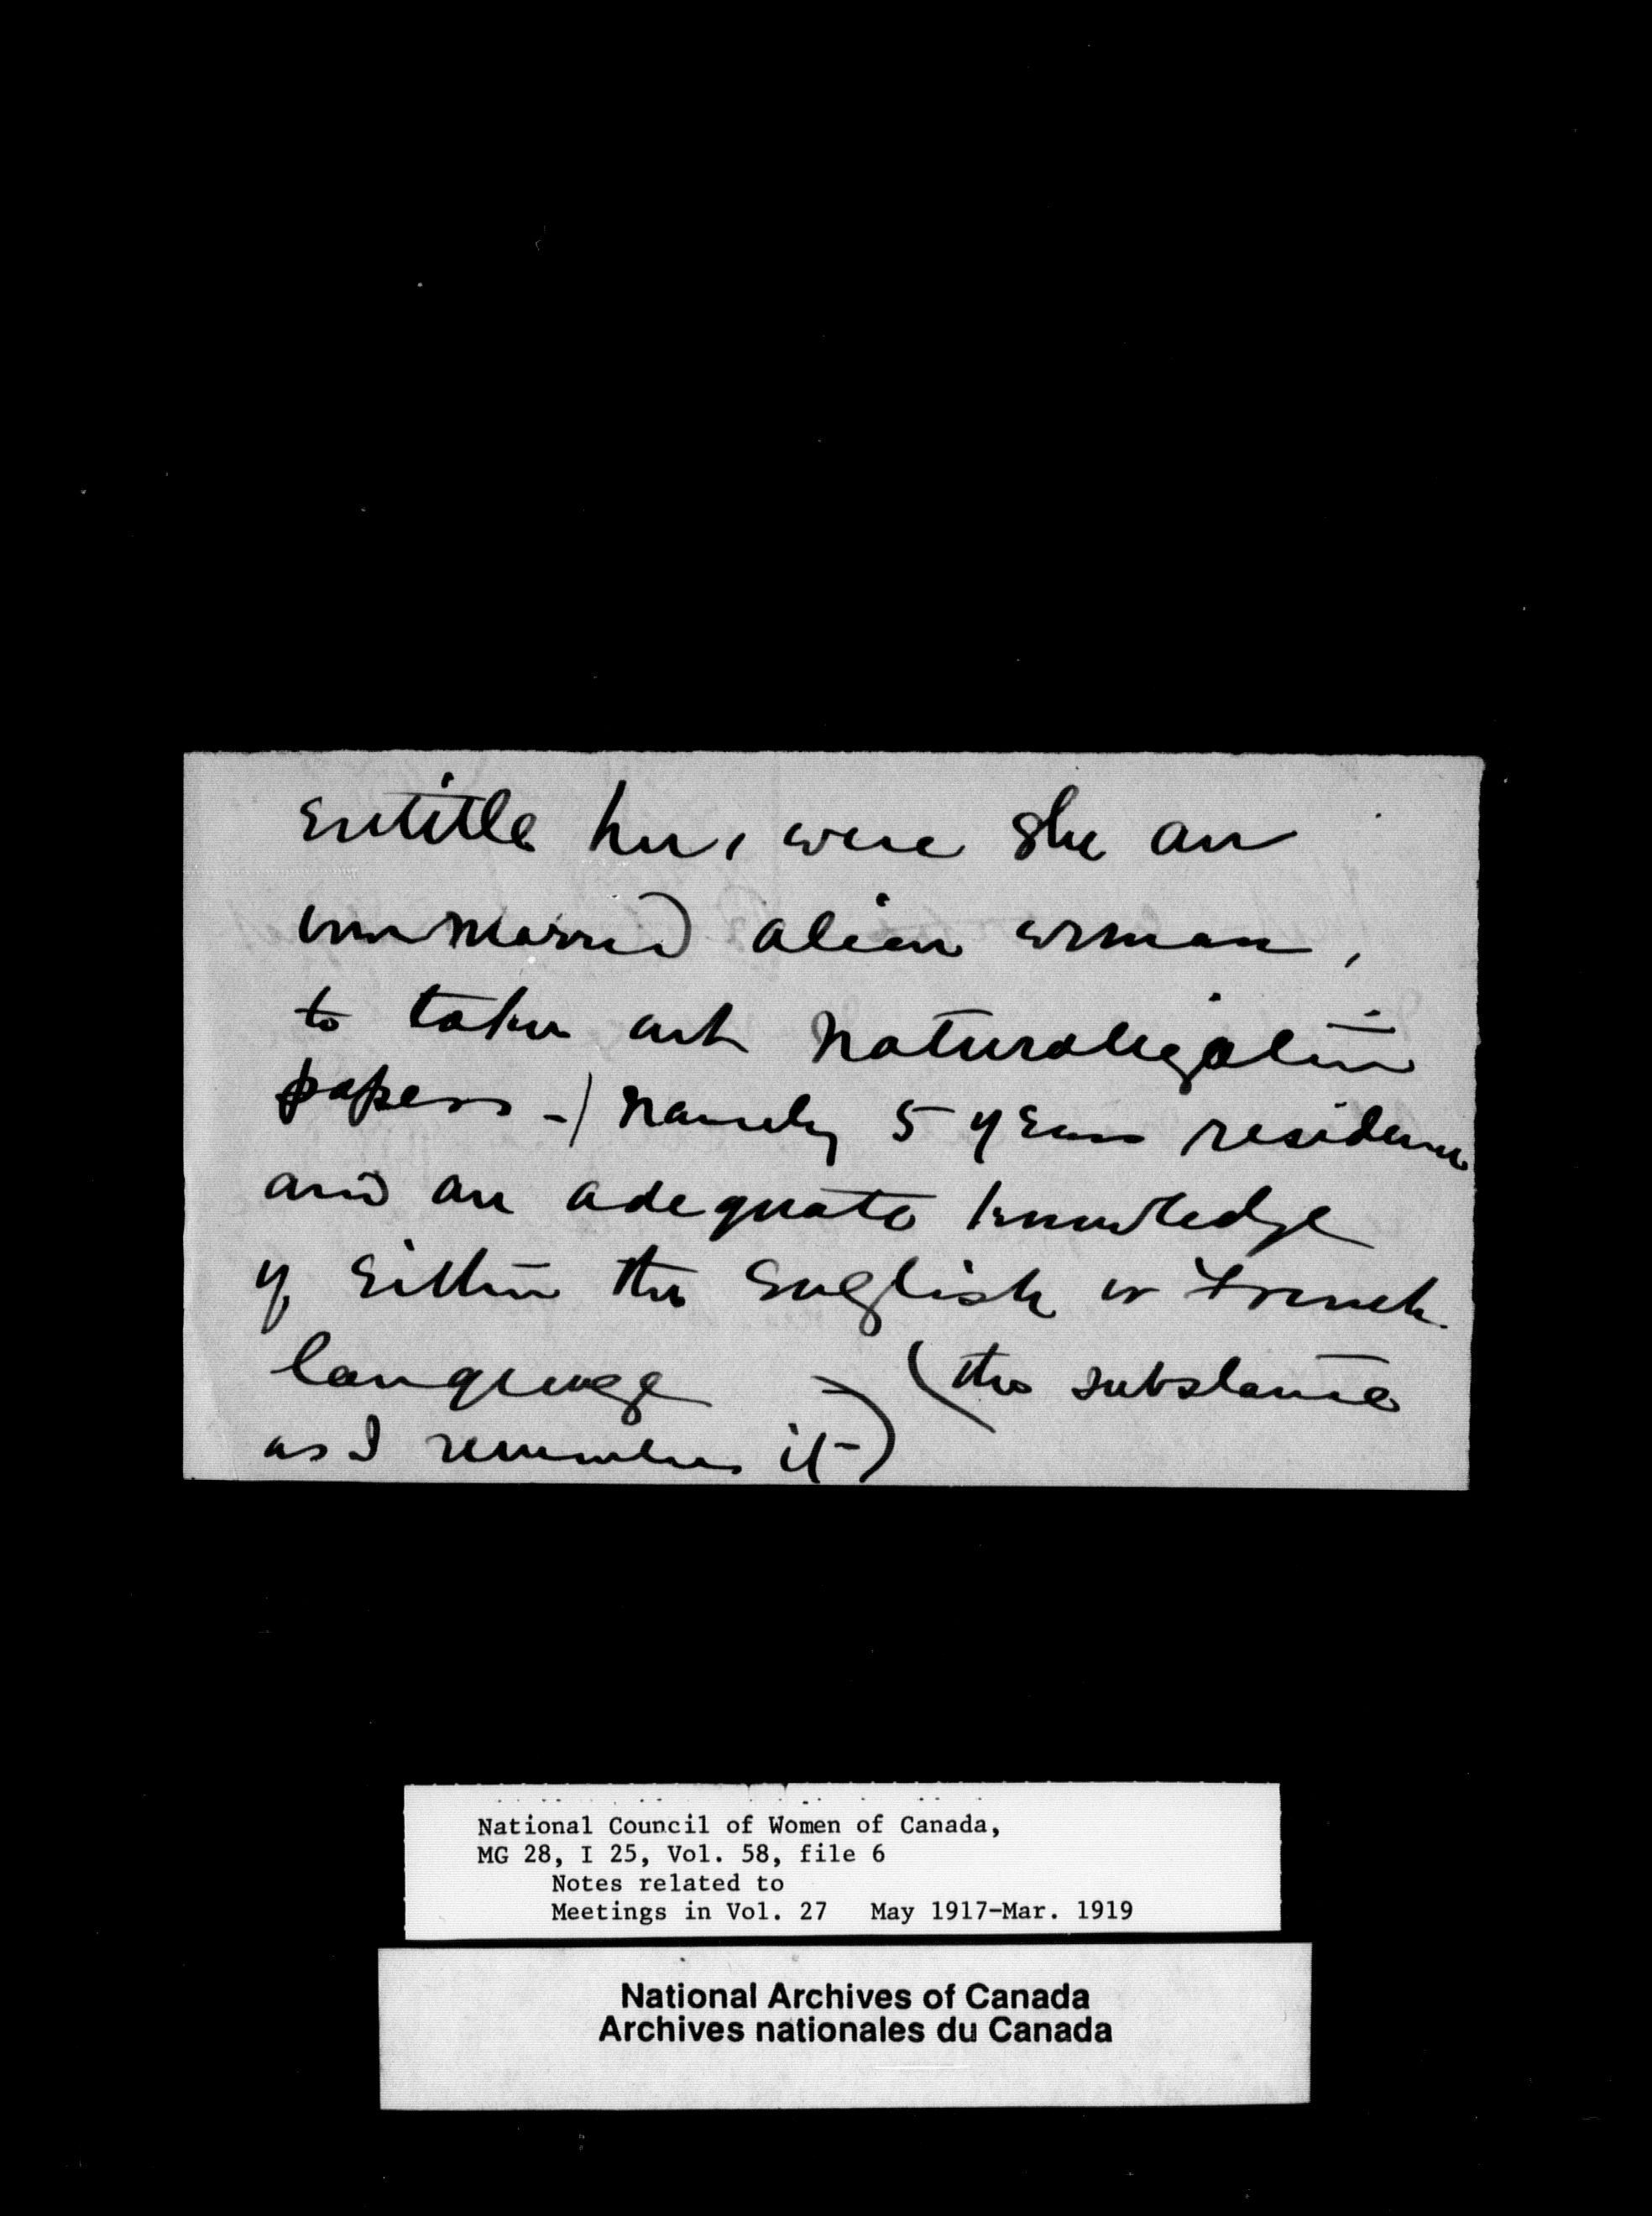 entitle her, were she an
unmarried alien woman,
to take out naturalization
papers -/ namely 5 years residence
and an adequate knowledge
of either the English or French
language -) (the substance
as I remember it-)
National Council of Women of Canada,
MG 28, I 25, Vol. 58, file 6
Notes related to
Meetings in Vol. 27 May 1917-Mar. 1919
National Archives of Canada
Archives nationales du Canada